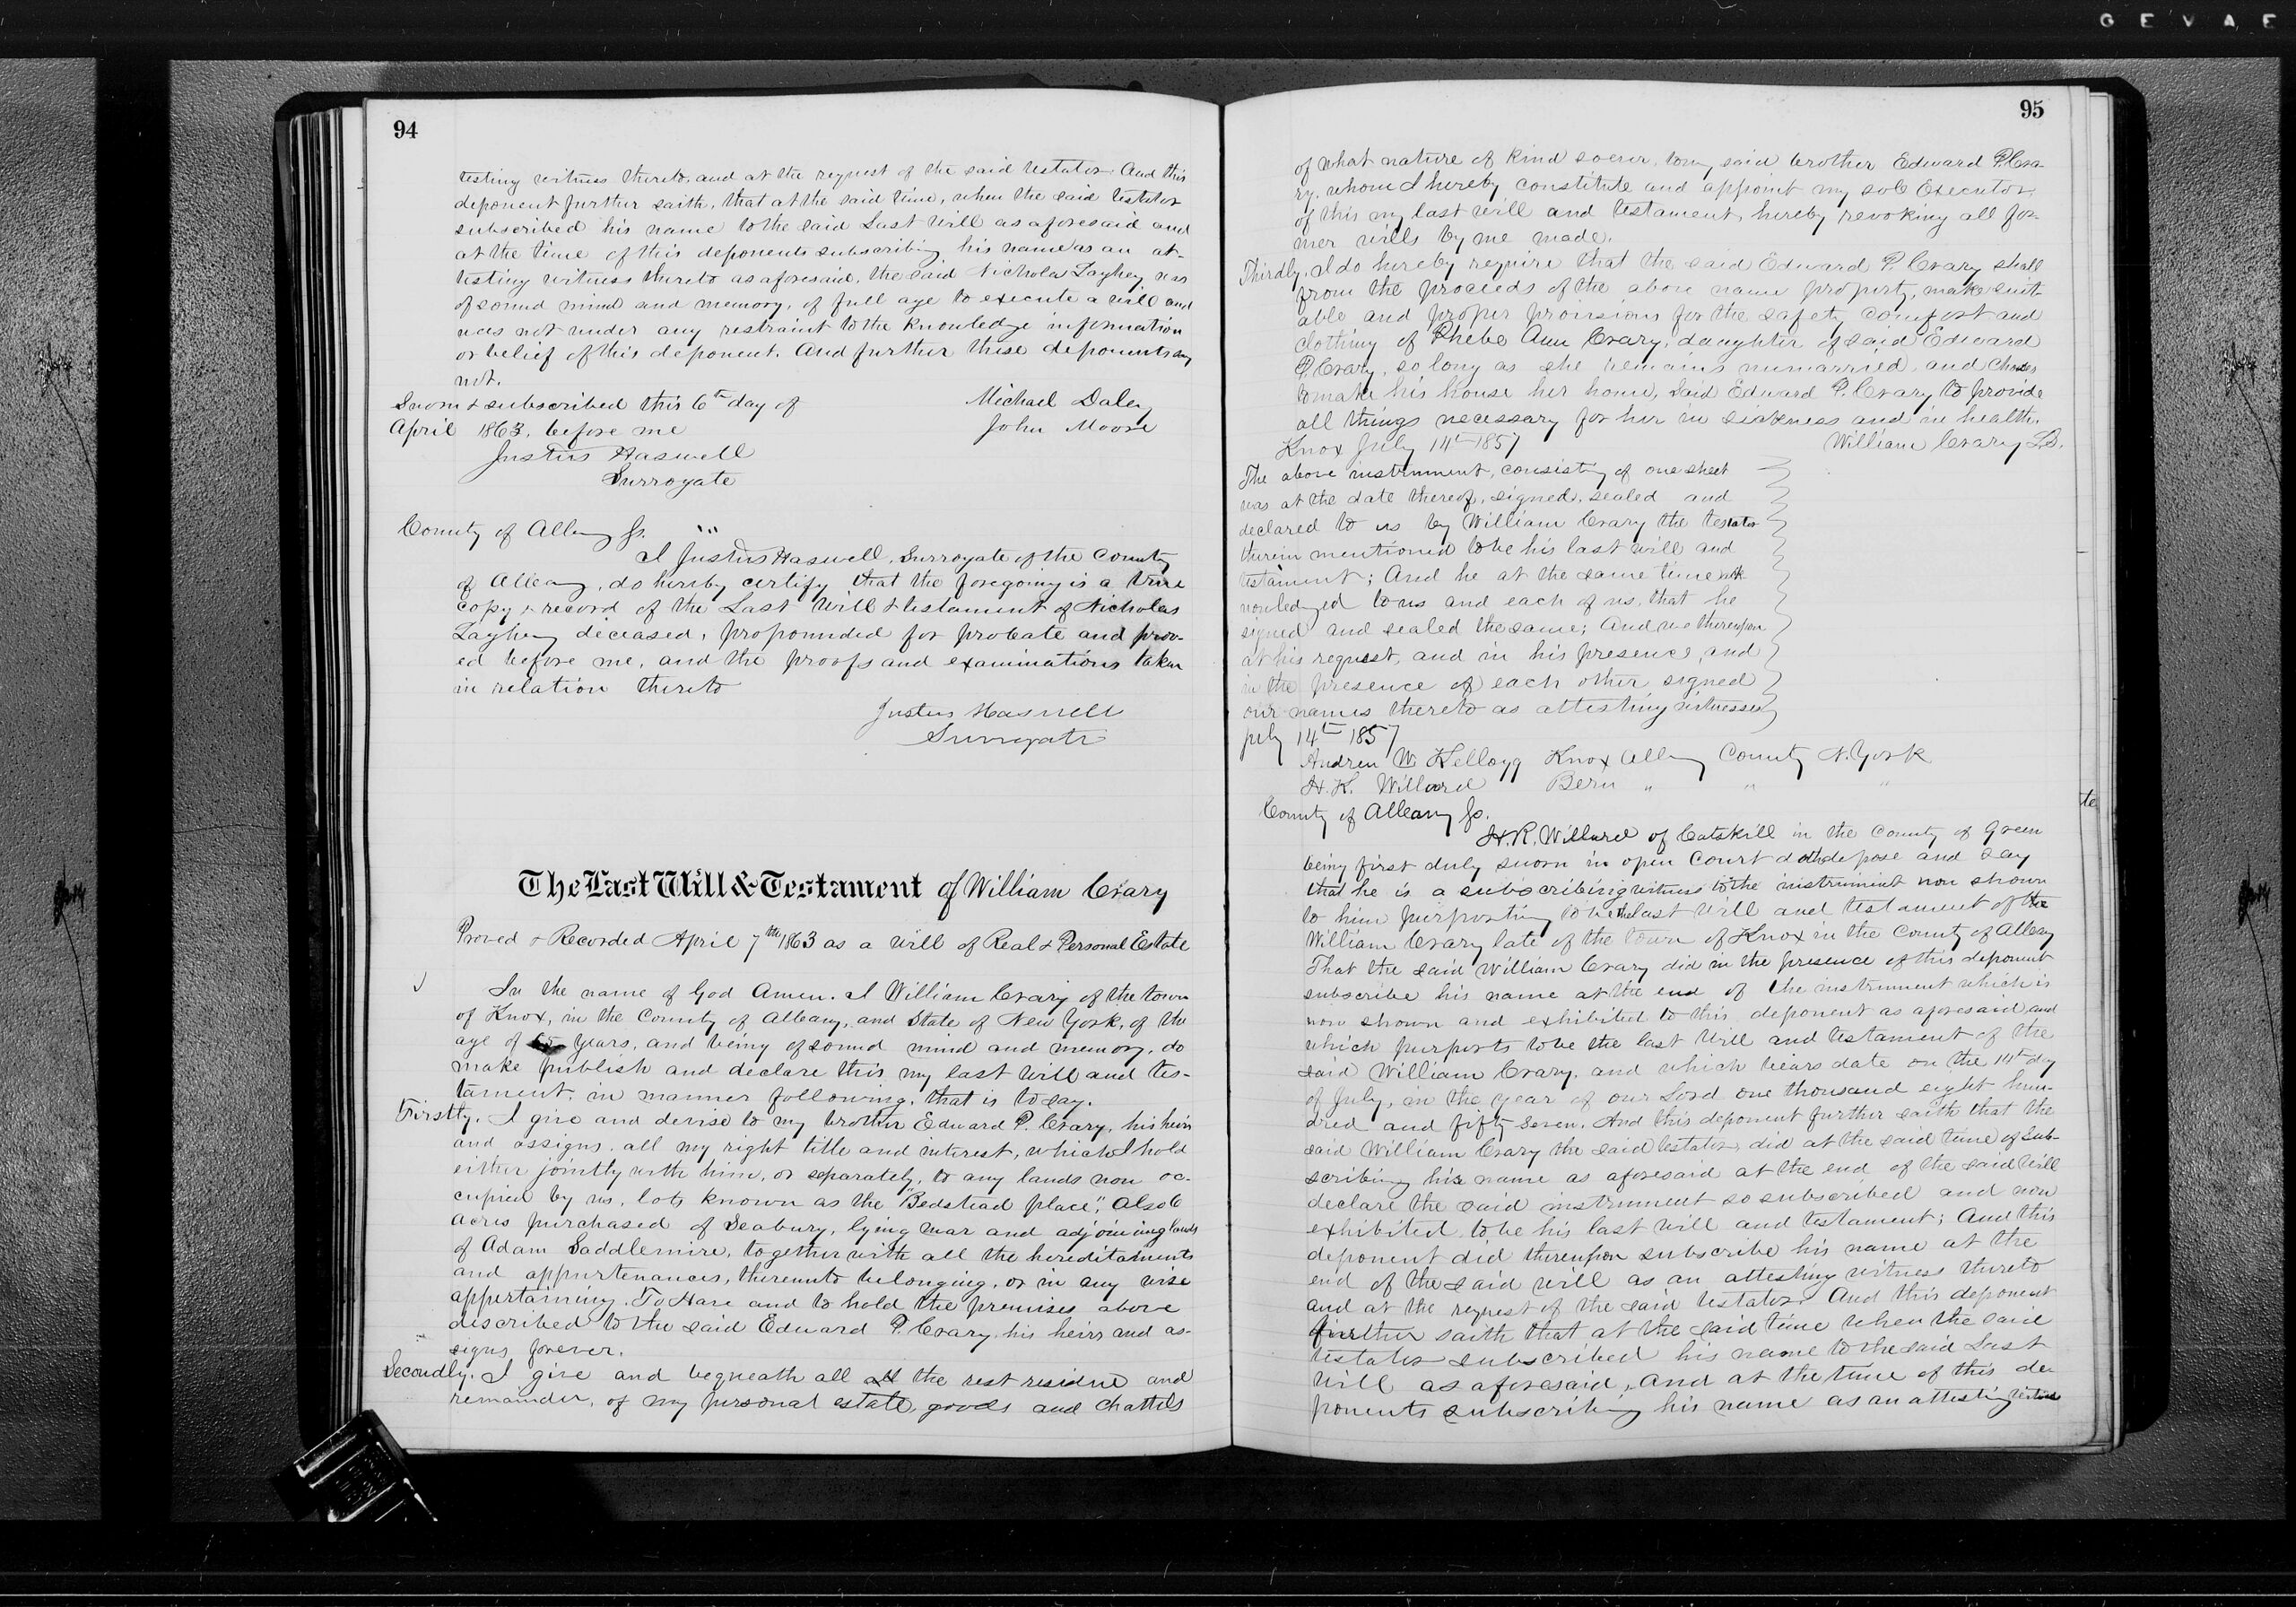 GEVAE
94
testing witness thereto, and at the request of the said testator. And this
deponent further saith, that at the said time, when the said testator
subscribed his name to the said Last Will as aforesaid and
at the time of this deponents subscribing his name as an at-
testing witness thereto as aforesaid, the said Nicholas Laghey was
of sound mind and memory, of full age to execute a will and
was not under any restraint to the knowledge information
or belief of this deponent. And further these deponents say
not.
Sworn & subscribed this 6th day of
April 1863, before me
Michael Daley
John Moore
Justus Haswell
Surrogate
County of Albany Ss.
I Justus Haswell, Surrogate of the County
of Albany, do hereby certify that the foregoing is a true
copy & record of the Last Will & testament of Nicholas
Laghey deceased, propounded for probate and prov-
ed before me, and the proofs and examinations taken
in relation thereto
Justus Haswell
Surrogate
The Last Will & Testament of William Crary
Proved & Recorded April 7th 1863 as a will of Real & Personal Estate
In the name of God Amen. I William Crary of the town
of Knox, in the County of Albany, and State of New York, of the
age of years, and being of sound mind and memory, do
make publish and declare this my last will and tes-
tament, in manner following, that is to say.
Firstly. I give and devise to my brother Edward P. Crary, his heirs
and assigns, all my right title and interest, which I hold
either jointly with him, or separately, to any lands now oc-
cupied by us, lots known as the "Bedstead place", also 6
acres purchased of Seabury, lying near and adjoining lands
of Adam Saddlemire, together with all the hereditaments
and appurtenances, thereunto belonging, or in any wise
appertaining. To Have and to hold the premises above
described to the said Edward P. Crary, his heirs and as-
signs forever.
Secondly. I give and bequeath all all the rest residue and
remainder, of my personal estate, goods and chattels
95
of what nature of kind soever, to my said brother Edward P. Cra-
ry, whom I hereby constitute and appoint my sole Executor,
of this my last will and testament, hereby revoking all for-
mer wills by me made.
Thirdly. I do hereby require that the said Edward P. Crary shall
from the proceeds of the above name property, make suit-
able and proper provisions for the safety comfort and
clothing of Phebe Ann Crary, daughter of said Edward
P. Crary, so long as she remains unmarried, and chooses
to make his house her home, said Edward P. Crary to provide
all things necessary for her in sickness and in health.
Knox July 14th 1857
William Crary L.S.
The above instrument, consisting of one sheet
was at the date thereof, signed, sealed and
declared to us by William Crary the testator
therein mentioned to be his last will and
testament; And he at the same time ack
nowledged to us and each of us, that he
signed and sealed the same; And we thereupon
at his request, and in his presence, and
in the presence of each other signed
our names thereto as attesting witnesses
july 14th 1857
Andrew W. Kellogg Knox Albany County N. York
H. K. Willard Bern " " "
County of Albany Ss.
te
H. R. Willard of Catskill in the County of Green
being first duly sworn in open Court doth depose and say
that he is a subscribing witness to the instrument now shown
to him purporting to be the last Will and testament of the
William Crary late of the town of Knox in the County of Albany
That the said William Crary did in the presence of this deponent
subscribe his name at the end of the instrument which is
now shown and exhibited to this deponent as aforesaid, and
which purports to be the last Will and testament of the
said William Crary, and which bears date on the 14th day
of July, in the year of our Lord one thousand eight hun-
dred and fifty Seven. And this deponent further saith that the
said William Crary the said testator, did at the said time of sub-
scribing his name as aforesaid at the end of the said Will
declare the said instrument so subscribed and now
exhibited, to be his last will and testament; And this
deponent did thereupon subscribe his name at the
end of the said will as an attesting witness thereto
and at the request of the said testator. And this deponent
further saith that at the said time when the said
testator subscribed his name to the said Last
Will as aforesaid, and at the time of this de
ponents subscribing his name as an attesting witness